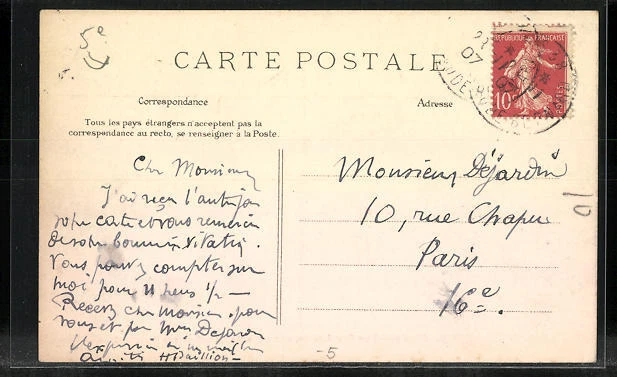 5e
CARTE POSTALE
RÉPUBLIQUE FRANÇAISE
10c
POSTES
07
Correspondance
Adresse
Tous les pays étrangers n'acceptent pas la
correspondance au recto, se renseigner à la Poste.
Cher Monsieur
J'ai reçu l'autre jour
votre carte et vous remercie
de votre bonne invitation.
Vous pouvez compter sur
moi pour 11 heures 1/2 —
Recevez cher Monsieur, pour
vous et pr Mme Dejardin
l'expression de
Monsieur Déjardin
10, rue Chapu
Paris
16e.
10
-5